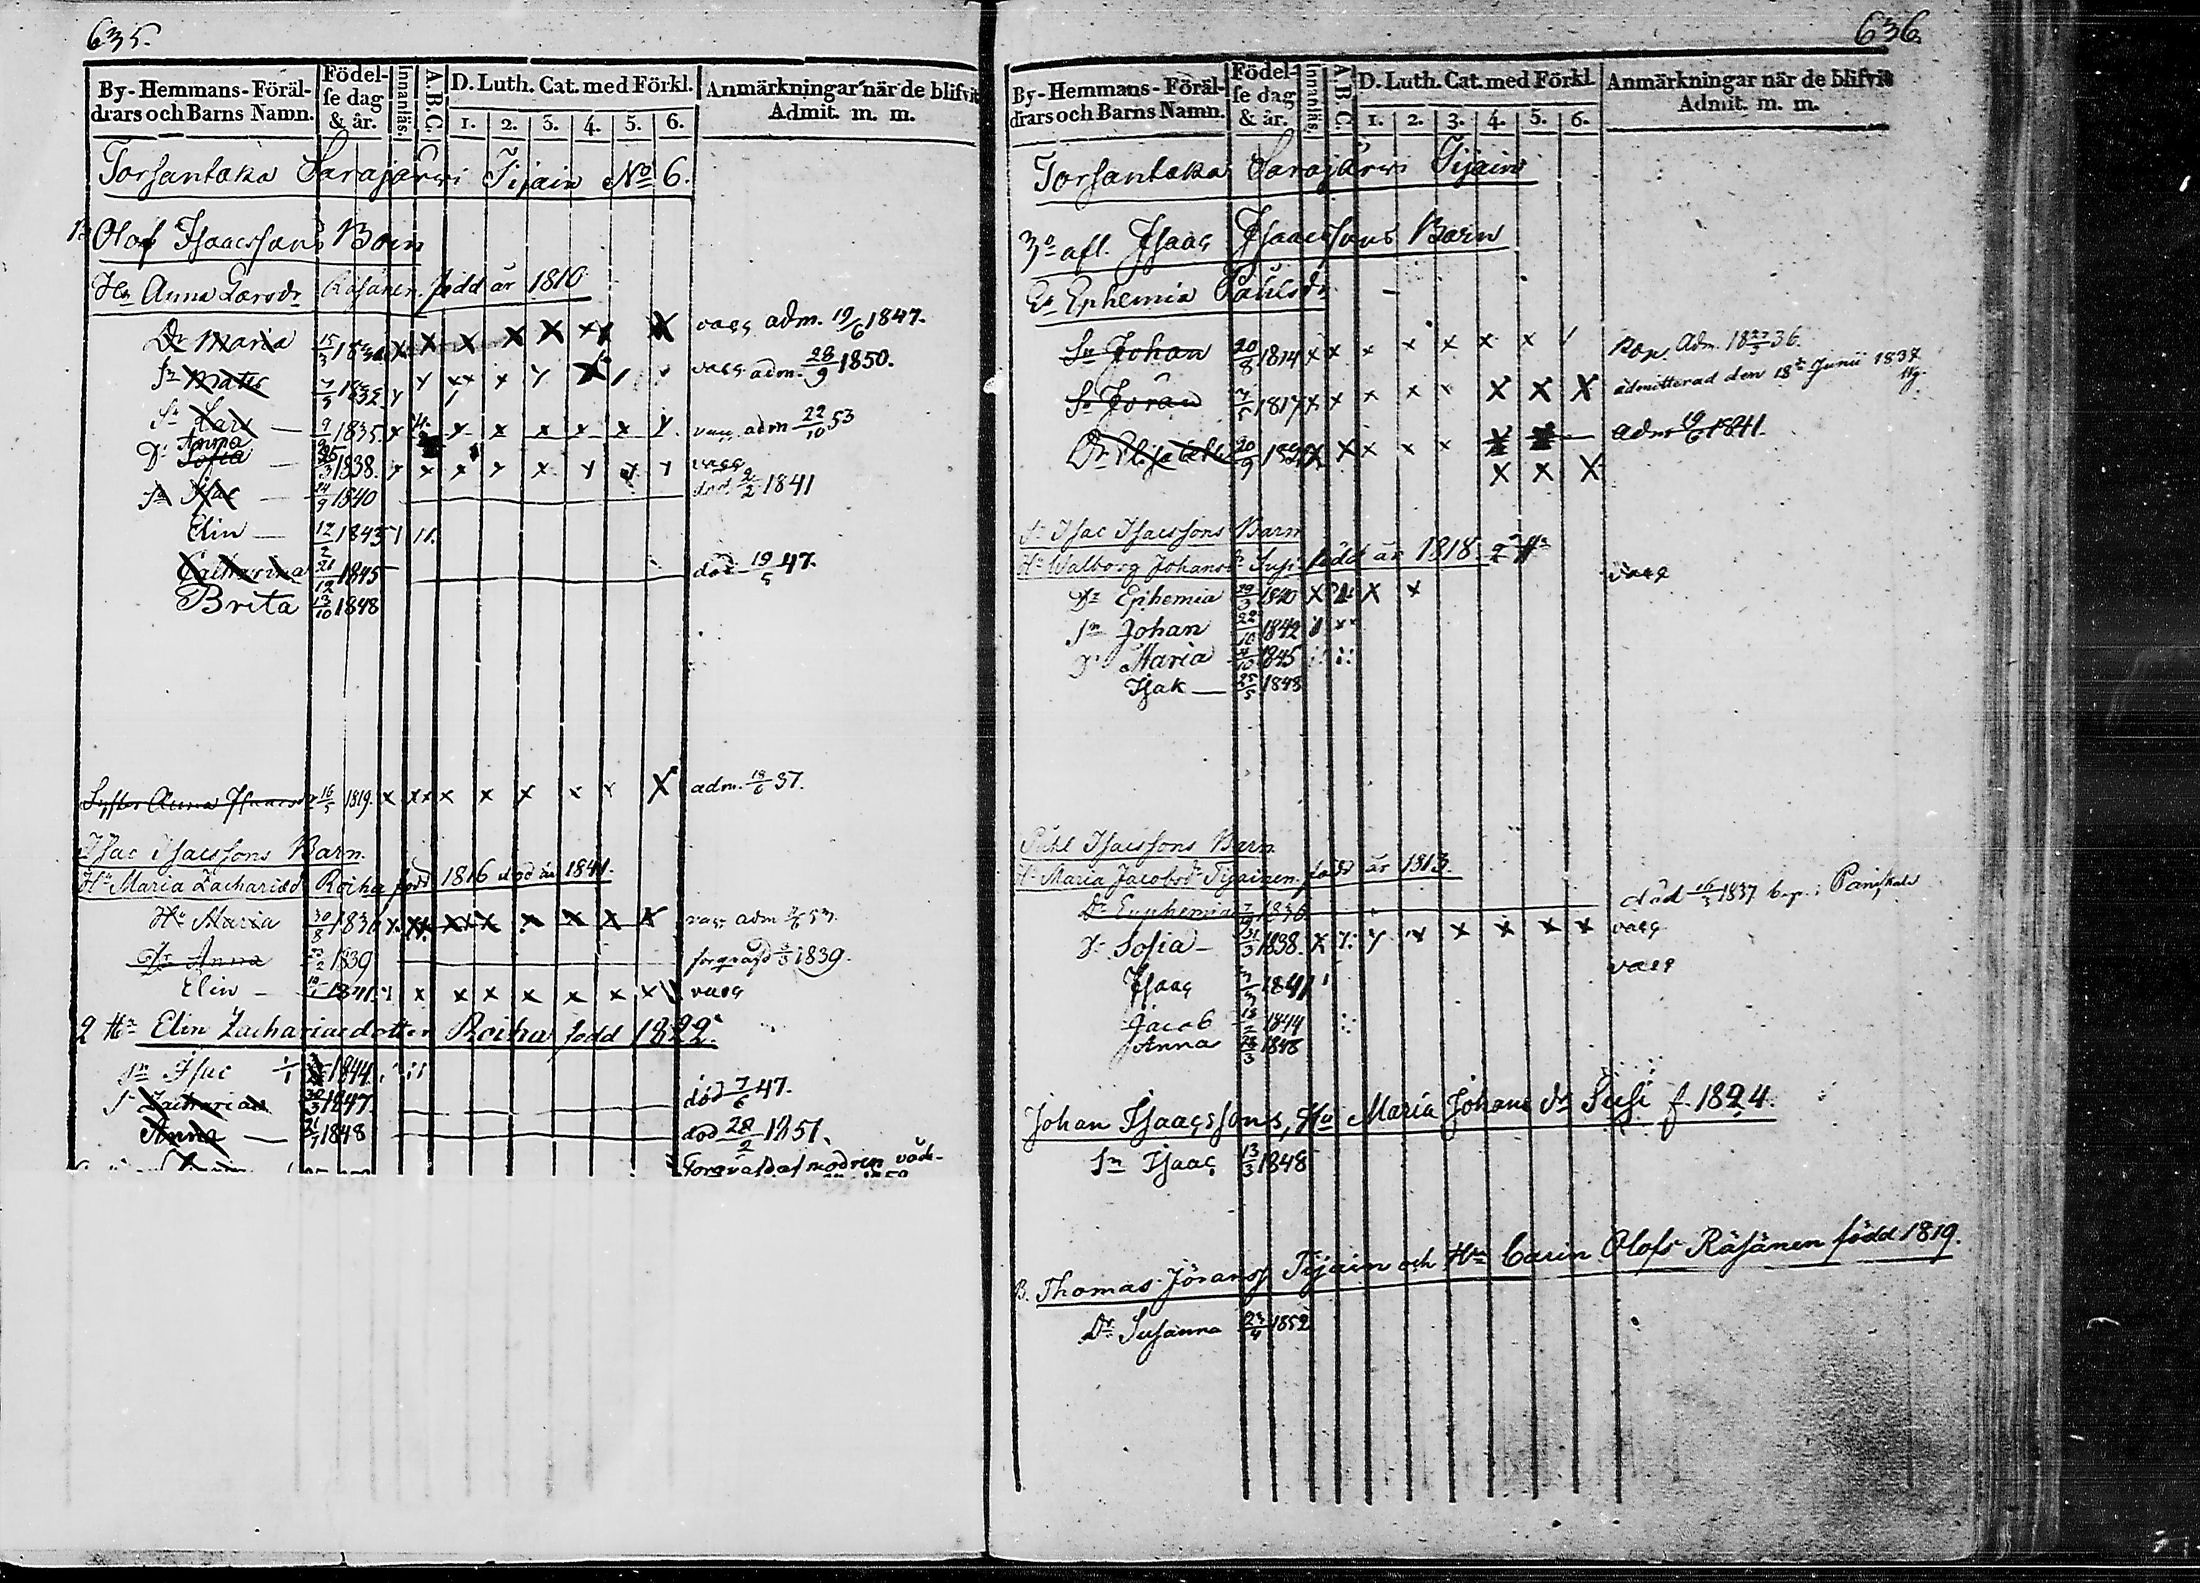 635.
By-Hemmans-Föräl-
drars och Barns Namn.
Födel-
se dag
& år.
Innanläs.
A.B.C.
D. Luth. Cat. med Förkl.
1. 2. 3. 4. 5. 6.
Anmärkningar när de blifvit
Admit. m. m.
Torsantaka Sarajärwi Tijain No 6.
Olof Isaacssons Barn
Hu Anna Larsdr Räsänen född år 1810
Dr Maria 15/3 x x x x x x x vacc adm. 19/6 1847.
Sn Mats 1832 vacc adm. 28/9 1850.
Sn Lars — 9/9 1835 x x x x x x vacc adm 22/10 53
Anna
Dr Sofia — 1838. x x x x x x vacc
Sn Isac — 24/9 1840 död 2/2 1841
Elin — 12/2 1843
Catharina 21/12 1845 död 19/5 47.
Brita 13/10 1848
Syster Anna Isaacsdr 16/5 1819. x x x x x x x x X adm. 18/6 37.
Isac Isacssons Barn
Hu Maria Zachariædr Roiha född 1816 död år 1841.
Maria 30/8 1836 x x x x x x x x vacc adm 53.
Dr Anna 23/2 1839 1839.
Elin — 1841. x x x x x x x vacc
2 Hu Elin Zachariaedotter Roiha född 1822.
Sn Isac 1844.
Sn Zacharias 1847. död 7/6 47.
Anna — 1848 död 28/2 1851.
af modren
636.
By-Hemmans-Föräl-
drars och Barns Namn.
Födel-
se dag
& år.
Innanläs.
A.B.C.
D. Luth. Cat. med Förkl.
1. 2. 3. 4. 5. 6.
Anmärkningar när de blifvit
Admit. m. m.
Torsantaka Sarajärwi Tijain
3o afl. Isaac Isaacssons Barn
Ea Ephemia Påhlsdr
Sn Johan 20/8 1814 x x x x x x x Kop. Adm.
Sn Jöran 7/5 1817 x x x x x X X X admitterad den 18de Junii 1837
Dr Elisabeth 20/9 x x x x x adm 19/6 1841.
X X X
Sn Isac Isacssons Barn
Hu Walborg Johansdr Susi född år 1818.
Dr Ephemia 1840 x x x vacc
Sn Johan 1842
Dr Maria 1845
Isak — 25/5 1848
Påhl Isacssons Barn
Hu Maria Jacobsdr Tijainen född år 1813.
Dr Euphemia 1836 död 1837
Dr Sofia — 31/3 1838. x x x x x x vacc
Isaac 1841 vacc
Jacob 1844
Anna 28/3 1848
Johan Isaacssons, Hu Maria Johansdr Susi f. 1824.
Sn Isaac 13/3 1848
B. Thomas Jöranss Tijain och Hu Carin Olofs Räsänen född 1819.
Dr Susanna 1852